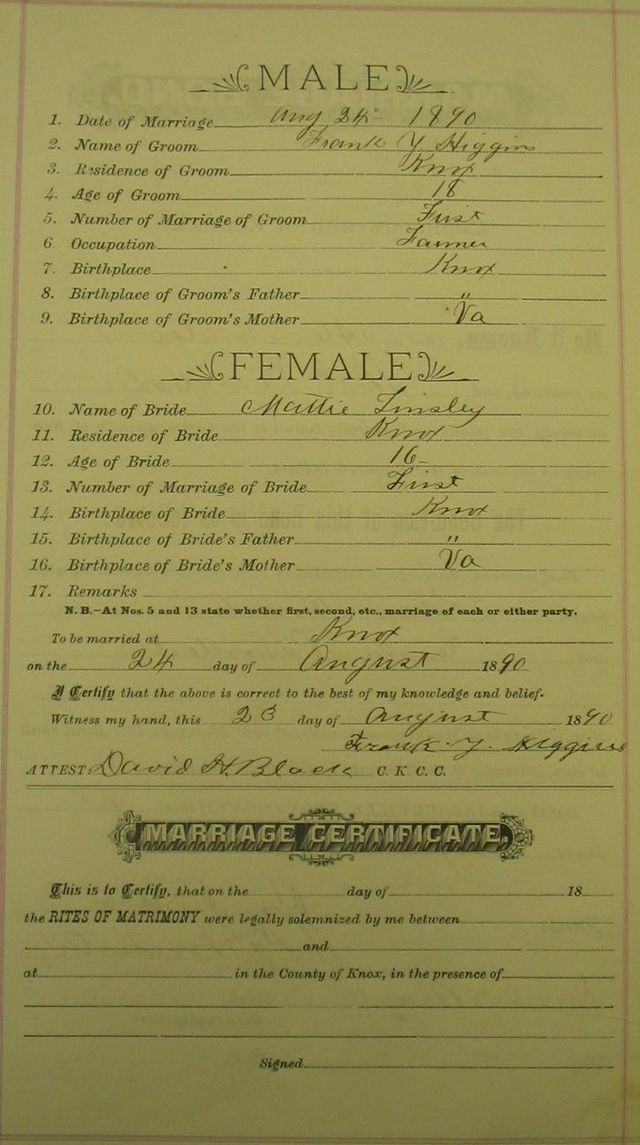 MALE
1. Date of Marriage Aug 24th 1890
2. Name of Groom Frank Y Higgins
3. Residence of Groom Knox
4. Age of Groom 18
5. Number of Marriage of Groom First
6. Occupation Farmer
7. Birthplace Knox
8. Birthplace of Groom's Father "
9. Birthplace of Groom's Mother Va
FEMALE
10. Name of Bride Mattie Linsley
11. Residence of Bride Knox
12. Age of Bride 16
13. Number of Marriage of Bride First
14. Birthplace of Bride Knox
15. Birthplace of Bride's Father "
16. Birthplace of Bride's Mother Va
17. Remarks
N. B.—At Nos. 5 and 13 state whether first, second, etc., marriage of each or either party.
To be married at Knox
on the 24 day of August 1890
I Certify that the above is correct to the best of my knowledge and belief.
Witness my hand, this 23 day of August 1890
Frank Y. Higgins
ATTEST: David H. Black C. K. C. C.
MARRIAGE CERTIFICATE.
This is to Certify, that on the day of 18
the RITES OF MATRIMONY were legally solemnized by me between
and
at in the County of Knox, in the presence of
Signed